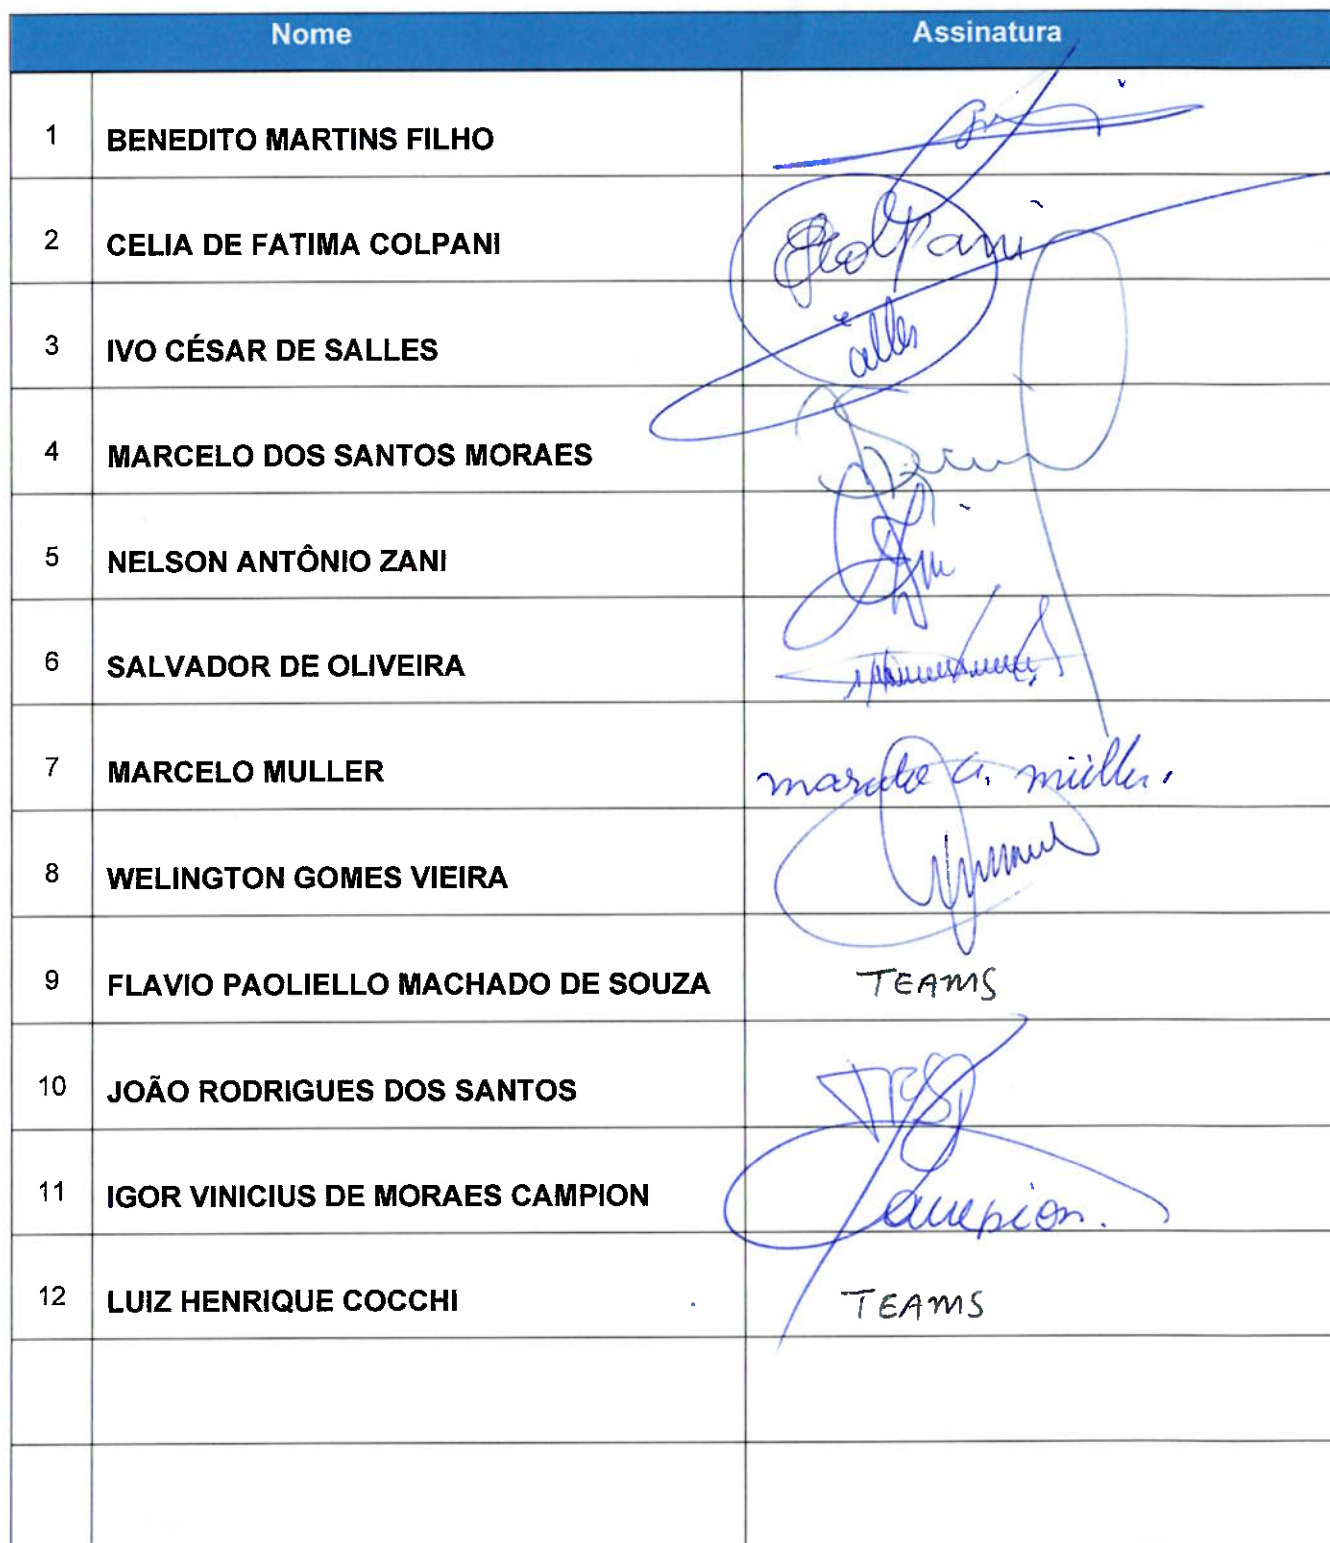 Nome Assinatura
1 BENEDITO MARTINS FILHO
2 CELIA DE FATIMA COLPANI Colpani
3 IVO CÉSAR DE SALLES
4 MARCELO DOS SANTOS MORAES
5 NELSON ANTÔNIO ZANI
6 SALVADOR DE OLIVEIRA
7 MARCELO MULLER marcelo a. müller.
8 WELINGTON GOMES VIEIRA
9 FLAVIO PAOLIELLO MACHADO DE SOUZA TEAMS
10 JOÃO RODRIGUES DOS SANTOS
11 IGOR VINICIUS DE MORAES CAMPION Campion.
12 LUIZ HENRIQUE COCCHI TEAMS